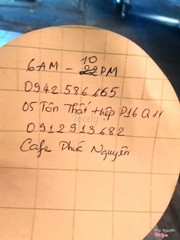 6AM - 10 PM
0942586665
05 Tôn Thất Hiệp P16 Q11
0912913682
Cafe Phố Nguyên